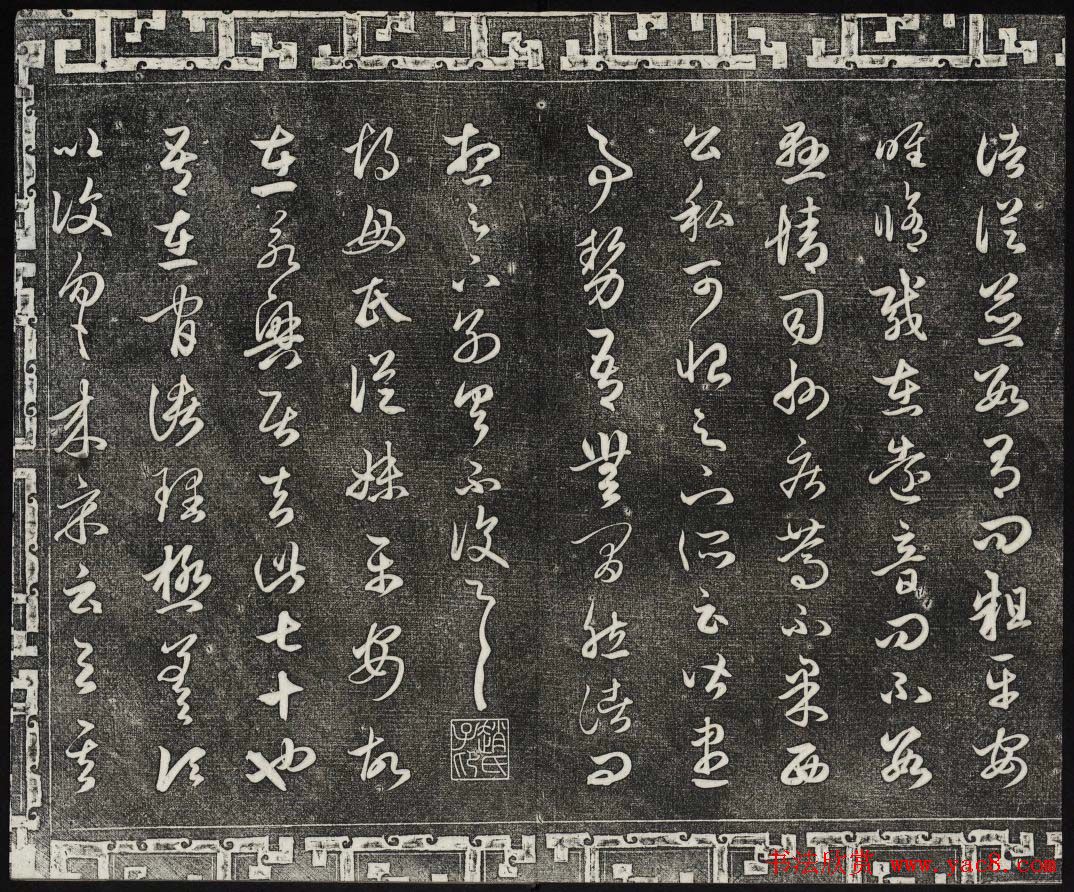 諸從並數有問粗平安
唯脩載在遠音問不數
懸情司州疾篤不果西
公私可恨足下所云皆盡
事勢吾無間然諸問
想足下別具不復一一
趙氏子昂
胡母氏從妹平安故
在永興居去此七十也
吾在官諸理極差頃
比復勿勿來示云與其
书法欣赏 www.yac8.com